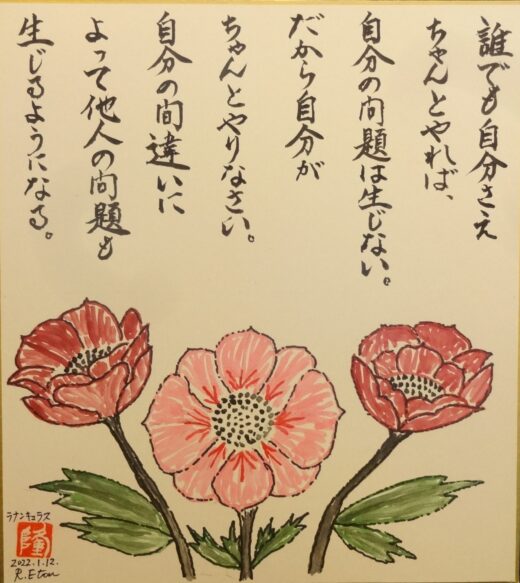 誰でも自分さえ
ちゃんとやれば、
自分の問題は生じない。
だから自分が
ちゃんとやりなさい。
自分の間違いに
よって他人の問題も
生じるようになる。
ラナンキュラス
隆
2022.1.12.
R.Eton